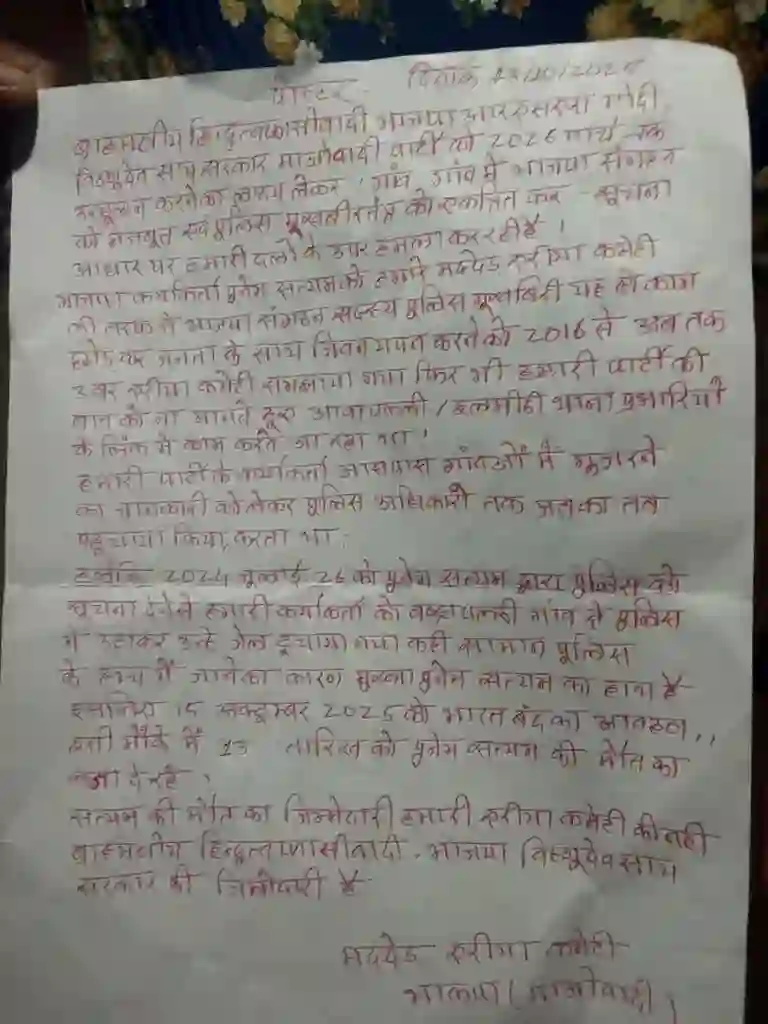 दिनांक
ब्राहमणीय हिन्दुत्वफासीवादी भाजपा आर एस एस मोदी
विष्णुदेव साय सरकार माओवादी पार्टी को 2026 मार्च तक
करने का लक्ष्य लेकर, गांव गांव में भाजपा संगठन
को मजबूत एवं पुलिस मुखबीर तंत्र को एकत्रित कर सूचना
आधार पर हमारी दलों के उपर हमला कर रही है।
भाजपा कार्यकर्ता पुनेम सत्यम को हमारे मददेड एरीया कमेटी
की तरफ से भाजपा संगठन सदस्य पुलिस मुखबिरी यह दो काम
छोड कर जनता के साथ जिवन यापन करने को 2016 से अब तक
3 बार एरीया कमेटी समझाया गया फिर भी हमारी पार्टी की
बात को ना मानते हूए आवापल्ली / इलमीडी थाना प्रभारियों
के लिंक में काम करते जा रहा था।
हमारी पार्टी के कार्यकर्ता आसपास गांवओं में गुजरने
का जानकारी को लेकर पुलिस अधिकारी तक जब का तब
पहूचाया किया करता था।
2024 जूलाई 26 को पुनेम सत्यम द्वारा पुलिस को
सूचना देने से हमारी कार्यकर्ता को गांव से पुलिस
ने उठाकर उन्हे जेल गया कही सामान पुलिस
के हाथ में जाने का कारण पुनेम सत्यम का हाथ है
इसलिए 15 अक्टूम्बर 2025 को भारत बंद का,,
इसी मौके में 13 तारिख को पुनेम सत्यम को मौत का
सजा दे रहे।
सत्यम की मौत का जिम्मेदारी हमारी एरीया कमेटी की नही
ब्राहमणीय हिन्दुत्वफासीवादी. भाजपा विष्णुदेव साय
सरकार की जिम्मेदारी है
मददेड एरीया कमेटी
भाकपा (माओवादी)